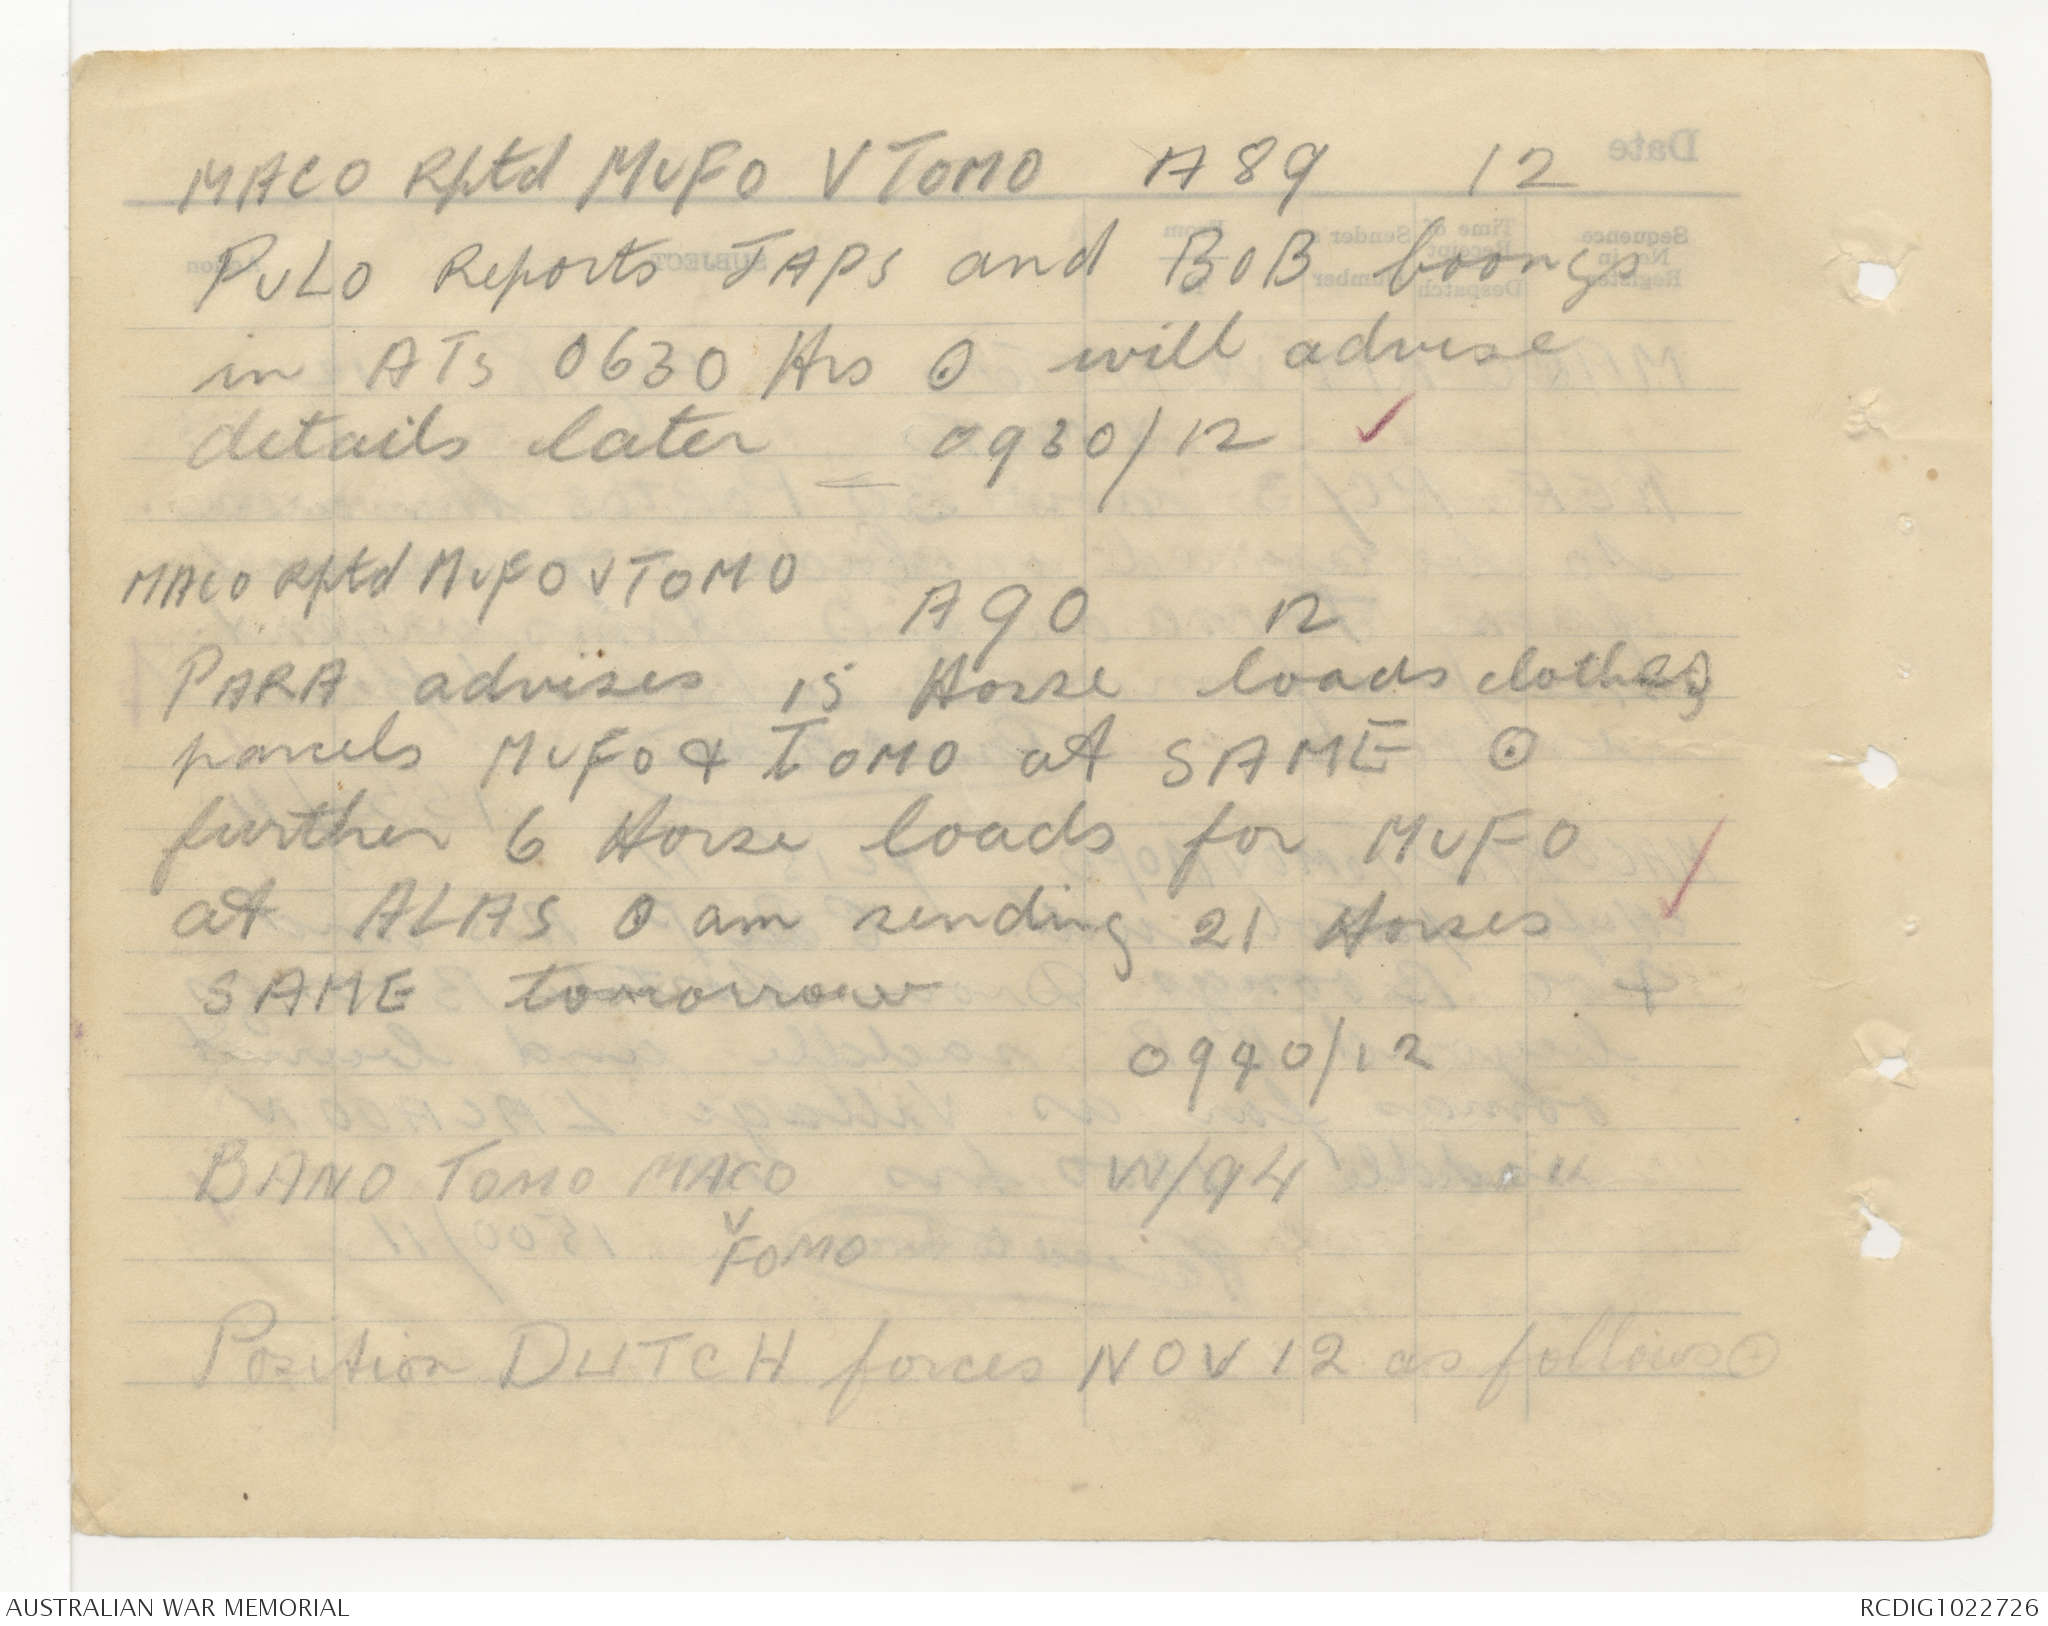 MACO Rptd MUFO V TOMO A89 12
PULO Reports JAPS and BOB boongs
in ATS 0630 Hrs ⊙ will advise
details later 0930/12 ✓
MACO Rptd MUFO V TOMO
A90 12
PARA advises 15 Horse loads clothes
parcels MUFO & TOMO at SAME ⊙
further 6 Horse loads for MUFO
at ALAS ⊙ am sending 21 Horses ✓
SAME tomorrow
0940/12
BANO TOMO MACO W/94
V
FOMO
Position DUTCH forces NOV 12 as follows ⊙
AUSTRALIAN WAR MEMORIAL
RCDIG1022726